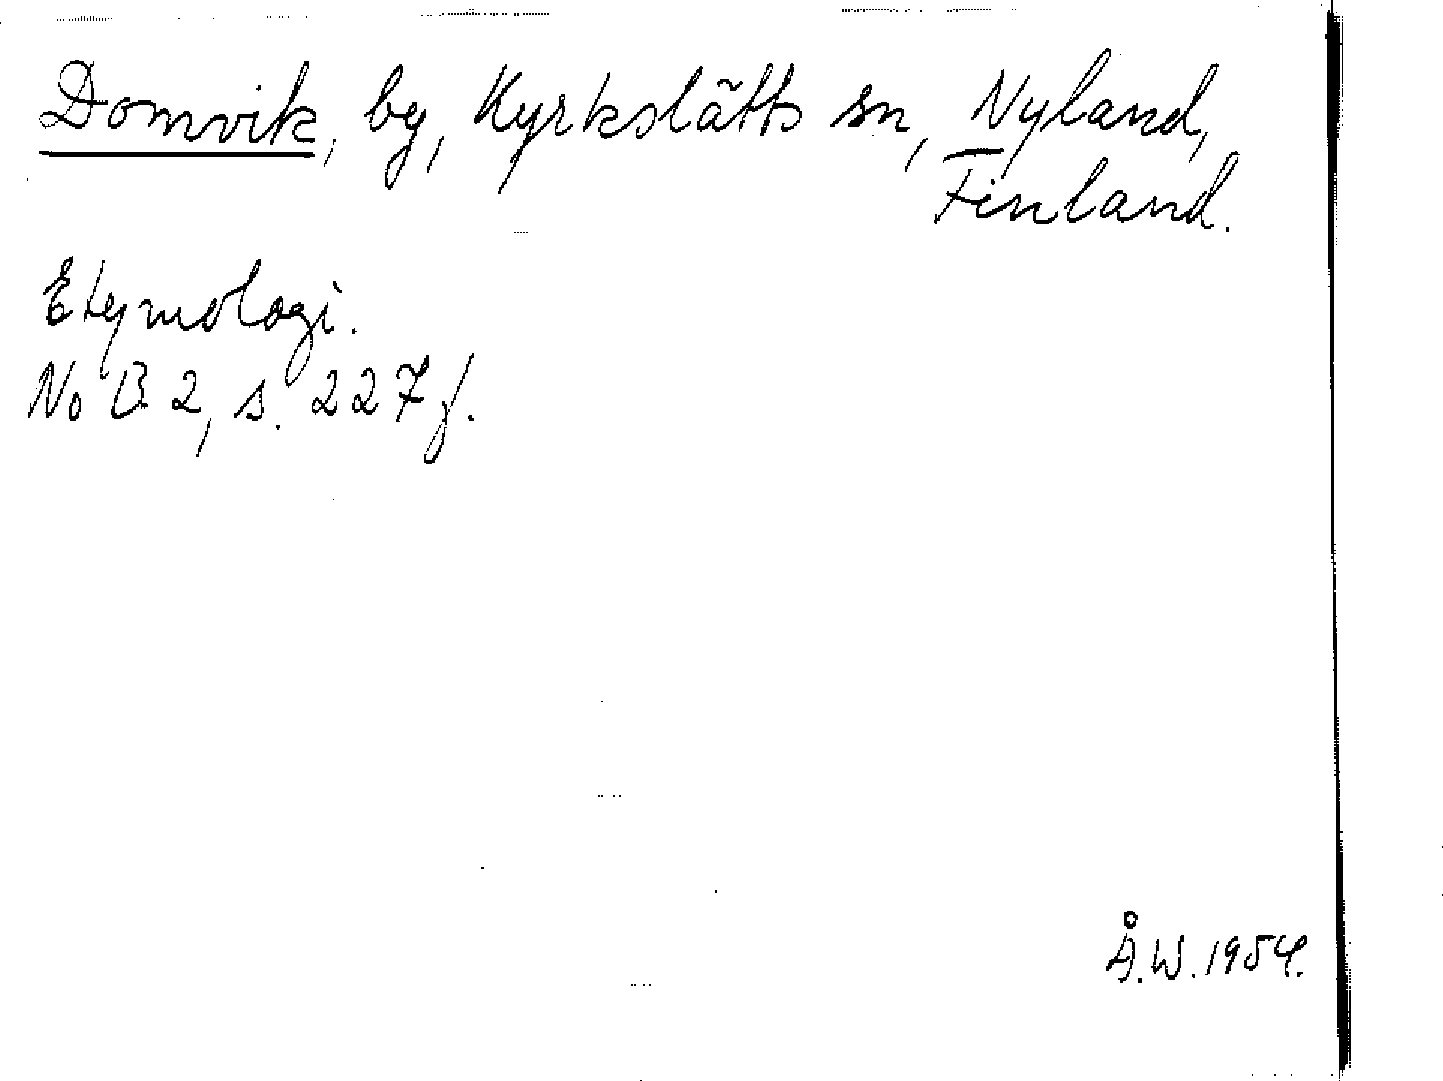 Domvik, by, Kyrkslätts sn, Nyland,
Finland.
Etymologi.
No B 2, s. 227 f.
Å.W. 1954.